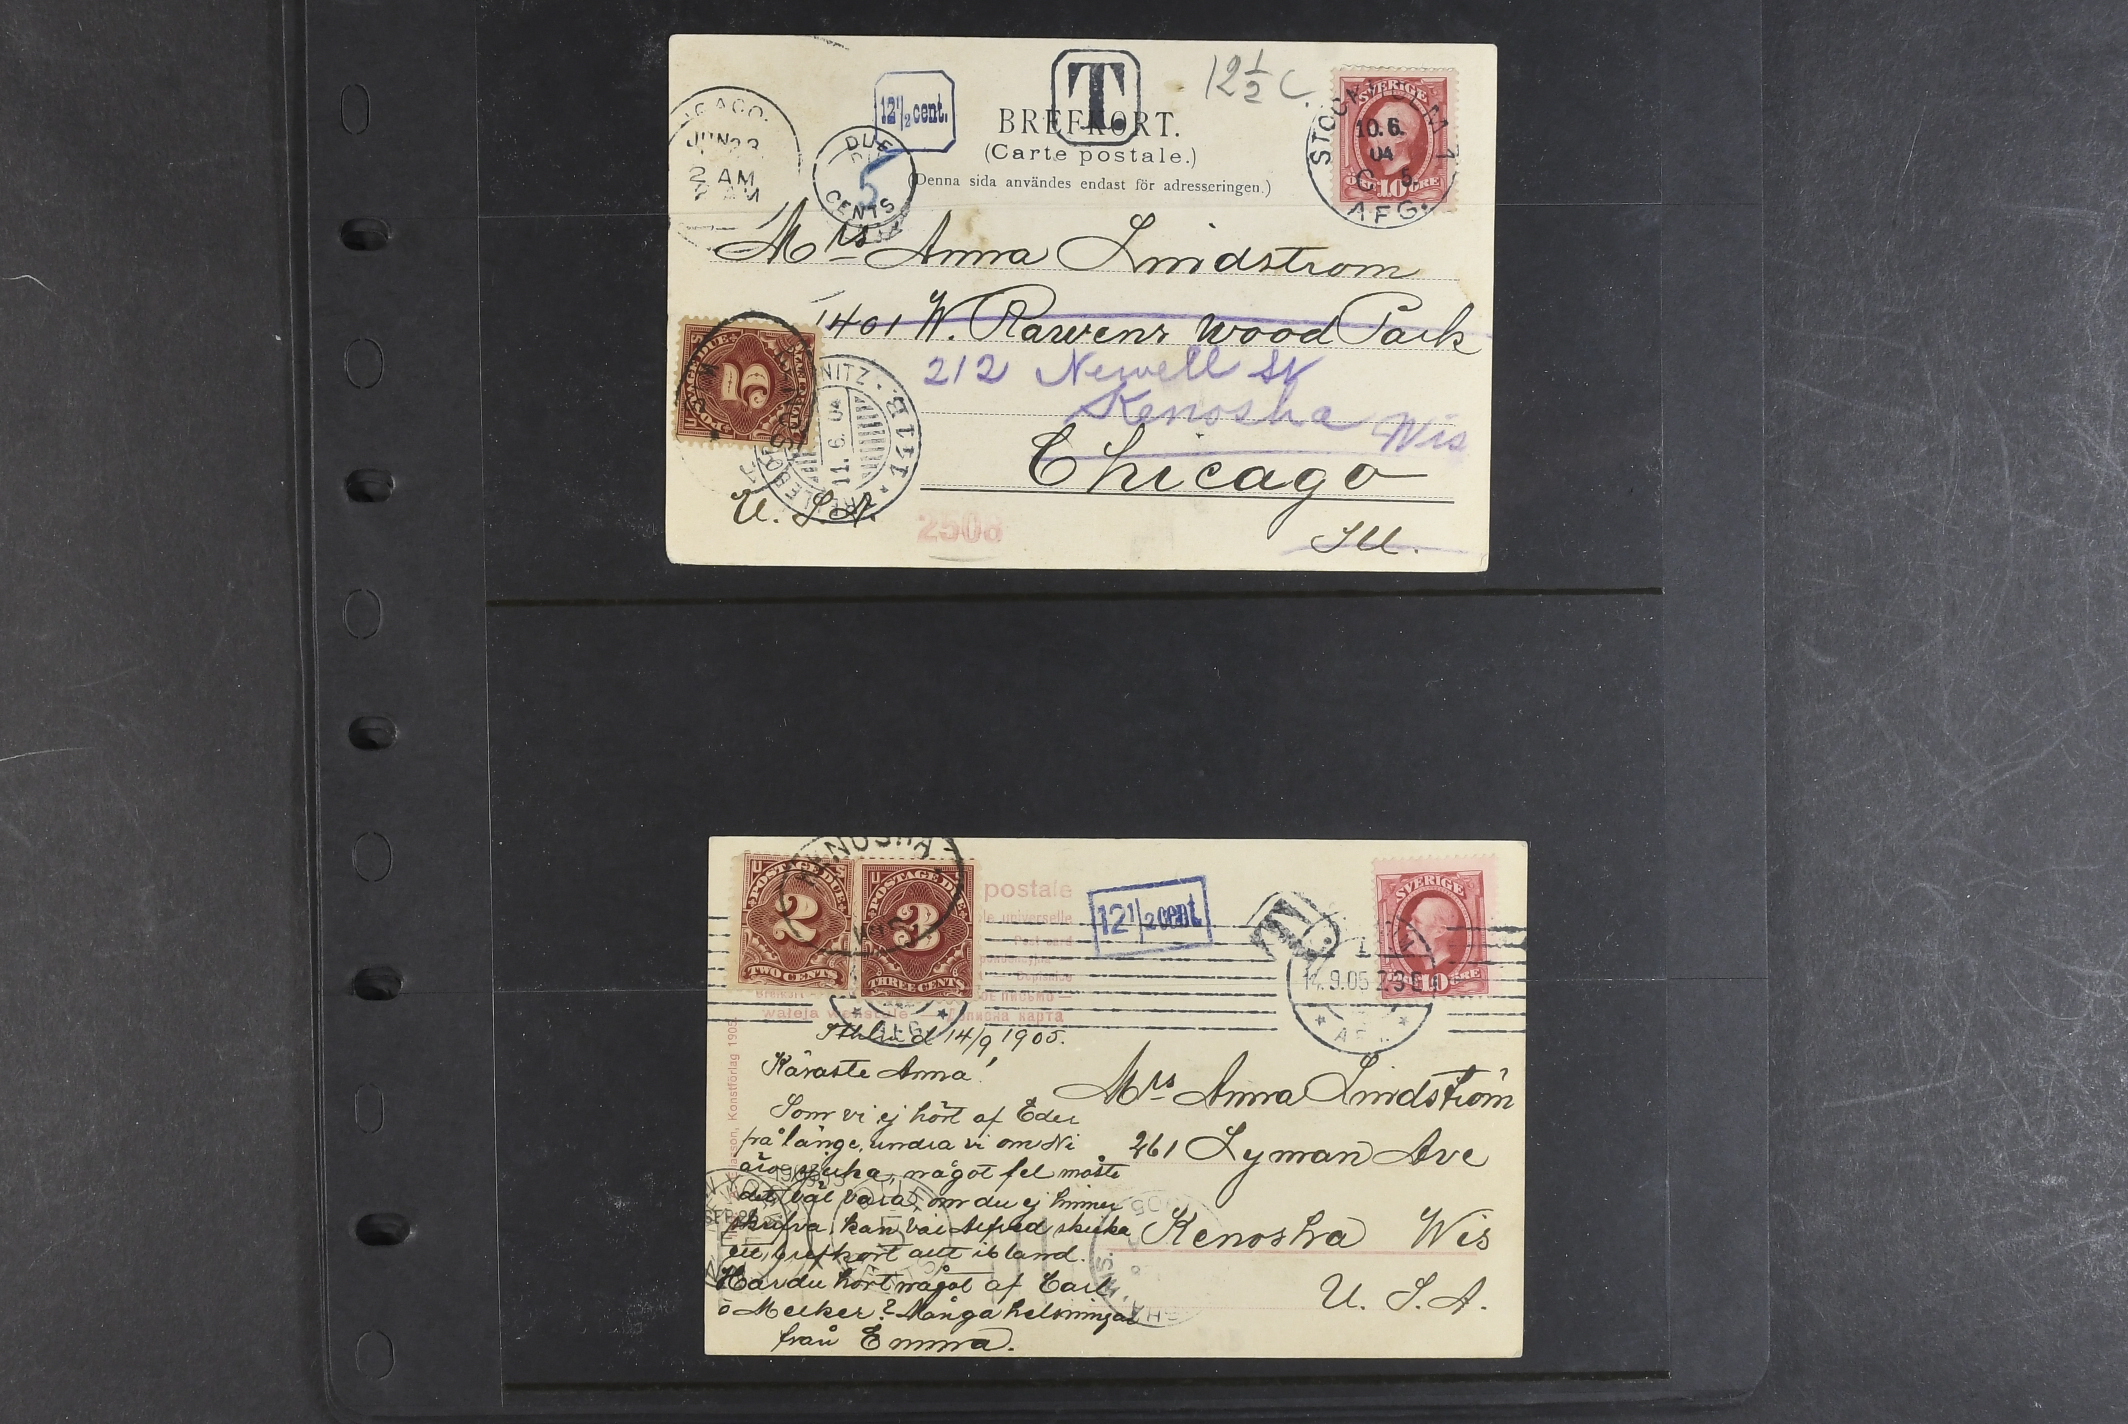 12 1/2 C.
T.
12 1/2 cent.
BREFKORT.
(Carte postale.)
(Denna sida användes endast för adresseringen.)
JUN 23
2 AM
DUE
5
CENTS
SVERIGE
10
STOCKHOLM 1
10.6.
04
AFG.
Mrs Anna Lindstrom
1401 W. Ravens wood Park
212 Newell St
Kenosha Wis
Chicago
Ill.
U. S. A.
POSTAGE DUE
5
11.6.04
2508
KENOSHA
POSTAGE DUE
2
TWO CENTS
POSTAGE DUE
3
THREE CENTS
postale
universelle
карта
12 1/2 cent.
T.
SVERIGE
10 ÖRE
14.9.05
AFG.
Konstförlag 1905.
Sthlm d 14/9 1905.
Käraste Anna!
Som vi ej hört af Eder
på länge, undra vi om Ni
äro sjuka, något fel måste
det väl vara, om du ej hinner
skrifva, kan väl Alfred skicka
ett brefkort allt ibland.
Har du hört något af Carl
o Melker? Många helsningar
från Emma.
Mrs Anna Lindström
261 Lyman Ave
Kenosha Wis
U. S. A.